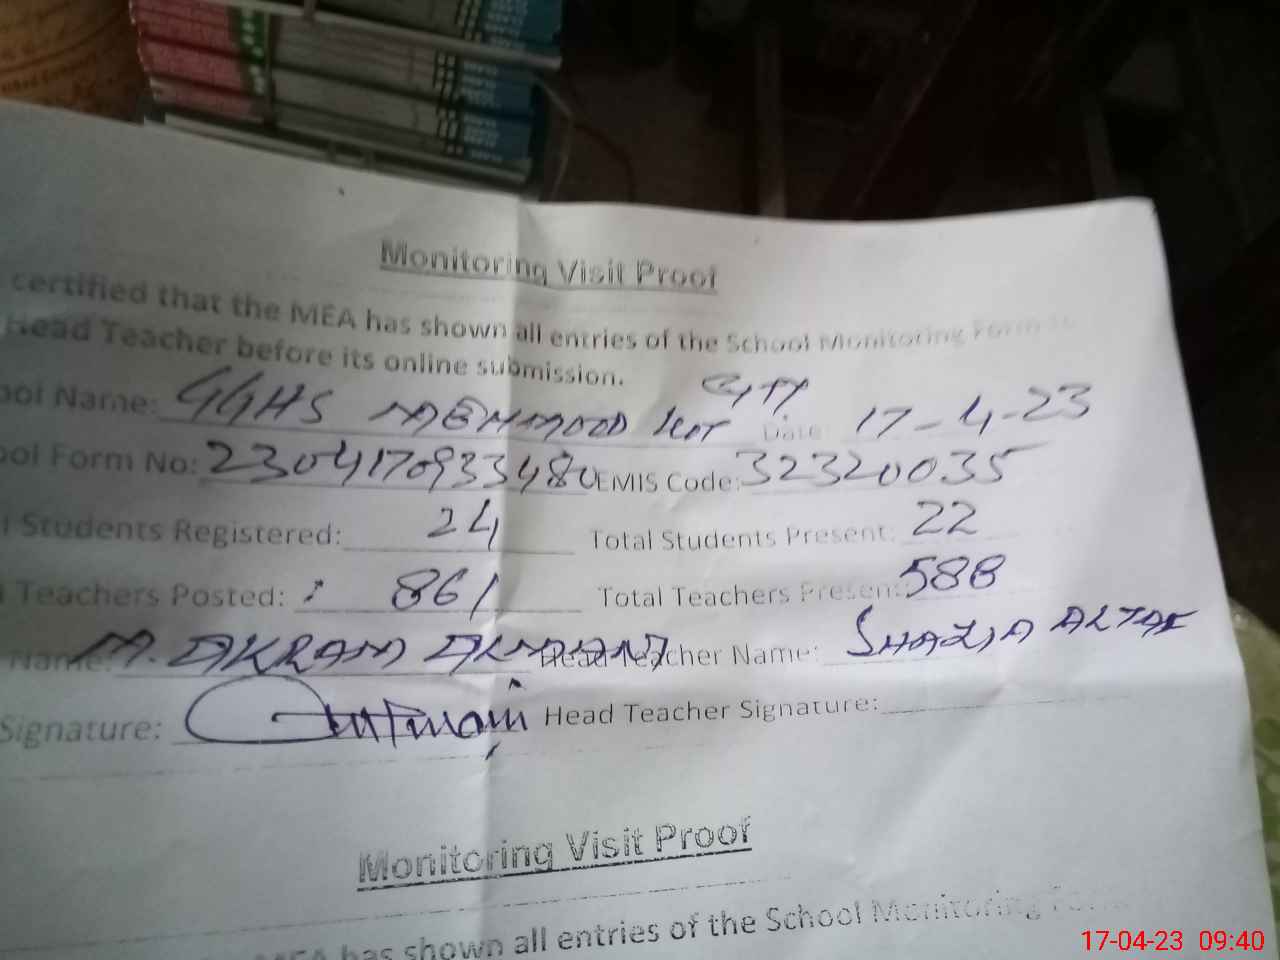 Monitoring Visit Proof
certified that the MEA has shown all entries of the School Monitoring Form to
Head Teacher before its online submission.
ool Name: GGHS MEHMOOD KOT City Date: 17-4-23
ool Form No: 230417093348 EMIS Code: 32320035
l Students Registered: 24 Total Students Present: 22
l Teachers Posted: 861 Total Teachers Present: 588
Name: M. AKRAM Head Teacher Name: SHAZIA ALTAF
Signature: Head Teacher Signature:
Monitoring Visit Proof
MEA has shown all entries of the School Monitoring Form
17-04-23 09:40